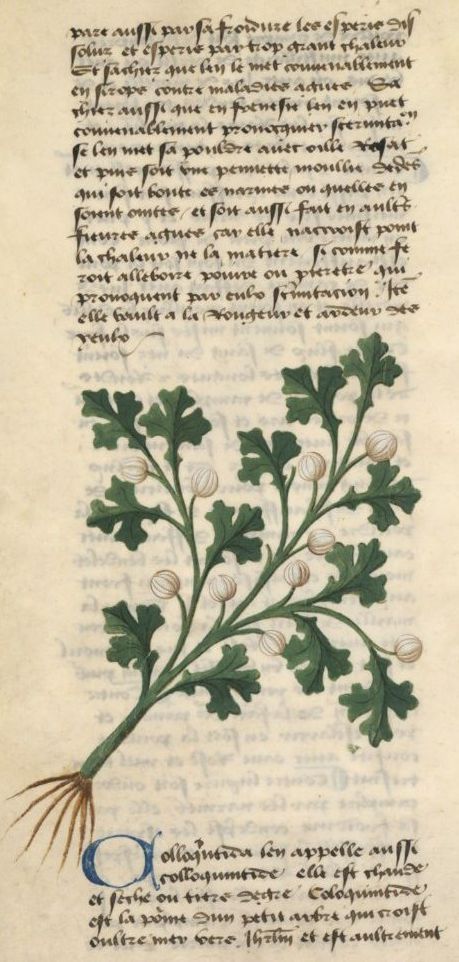 pare aussi par sa froidure les esperis dis
solus et esperis par trop grant chaleur
Et sachiez que len le met convenablement
en sirops contre maladies agues Sa
chiez aussi que en frenesie len en puet
convenablement provocquier
se len met sa pouldre avec oille Rosat
et puis soit une pennette moullie dedens
qui soit boute es narines ou quelles en
soient ointes et soit aussi fait en aultres
fievres agues car elle naccroist point
la chaleur ne la matiere si comme fe
roit alleboire poivre ou pieretre qui
provoquent par eulx Itē
elle vault a la Rougeur et ardeur des
yeulx
Colloquītida len appelle aussi
colloquintide elle est chaude
et seche ou tiers degre Coloquintide
est la pōme dun petit arbre qui croist
oultre mer vers Jhrlm̄ et est aultrement